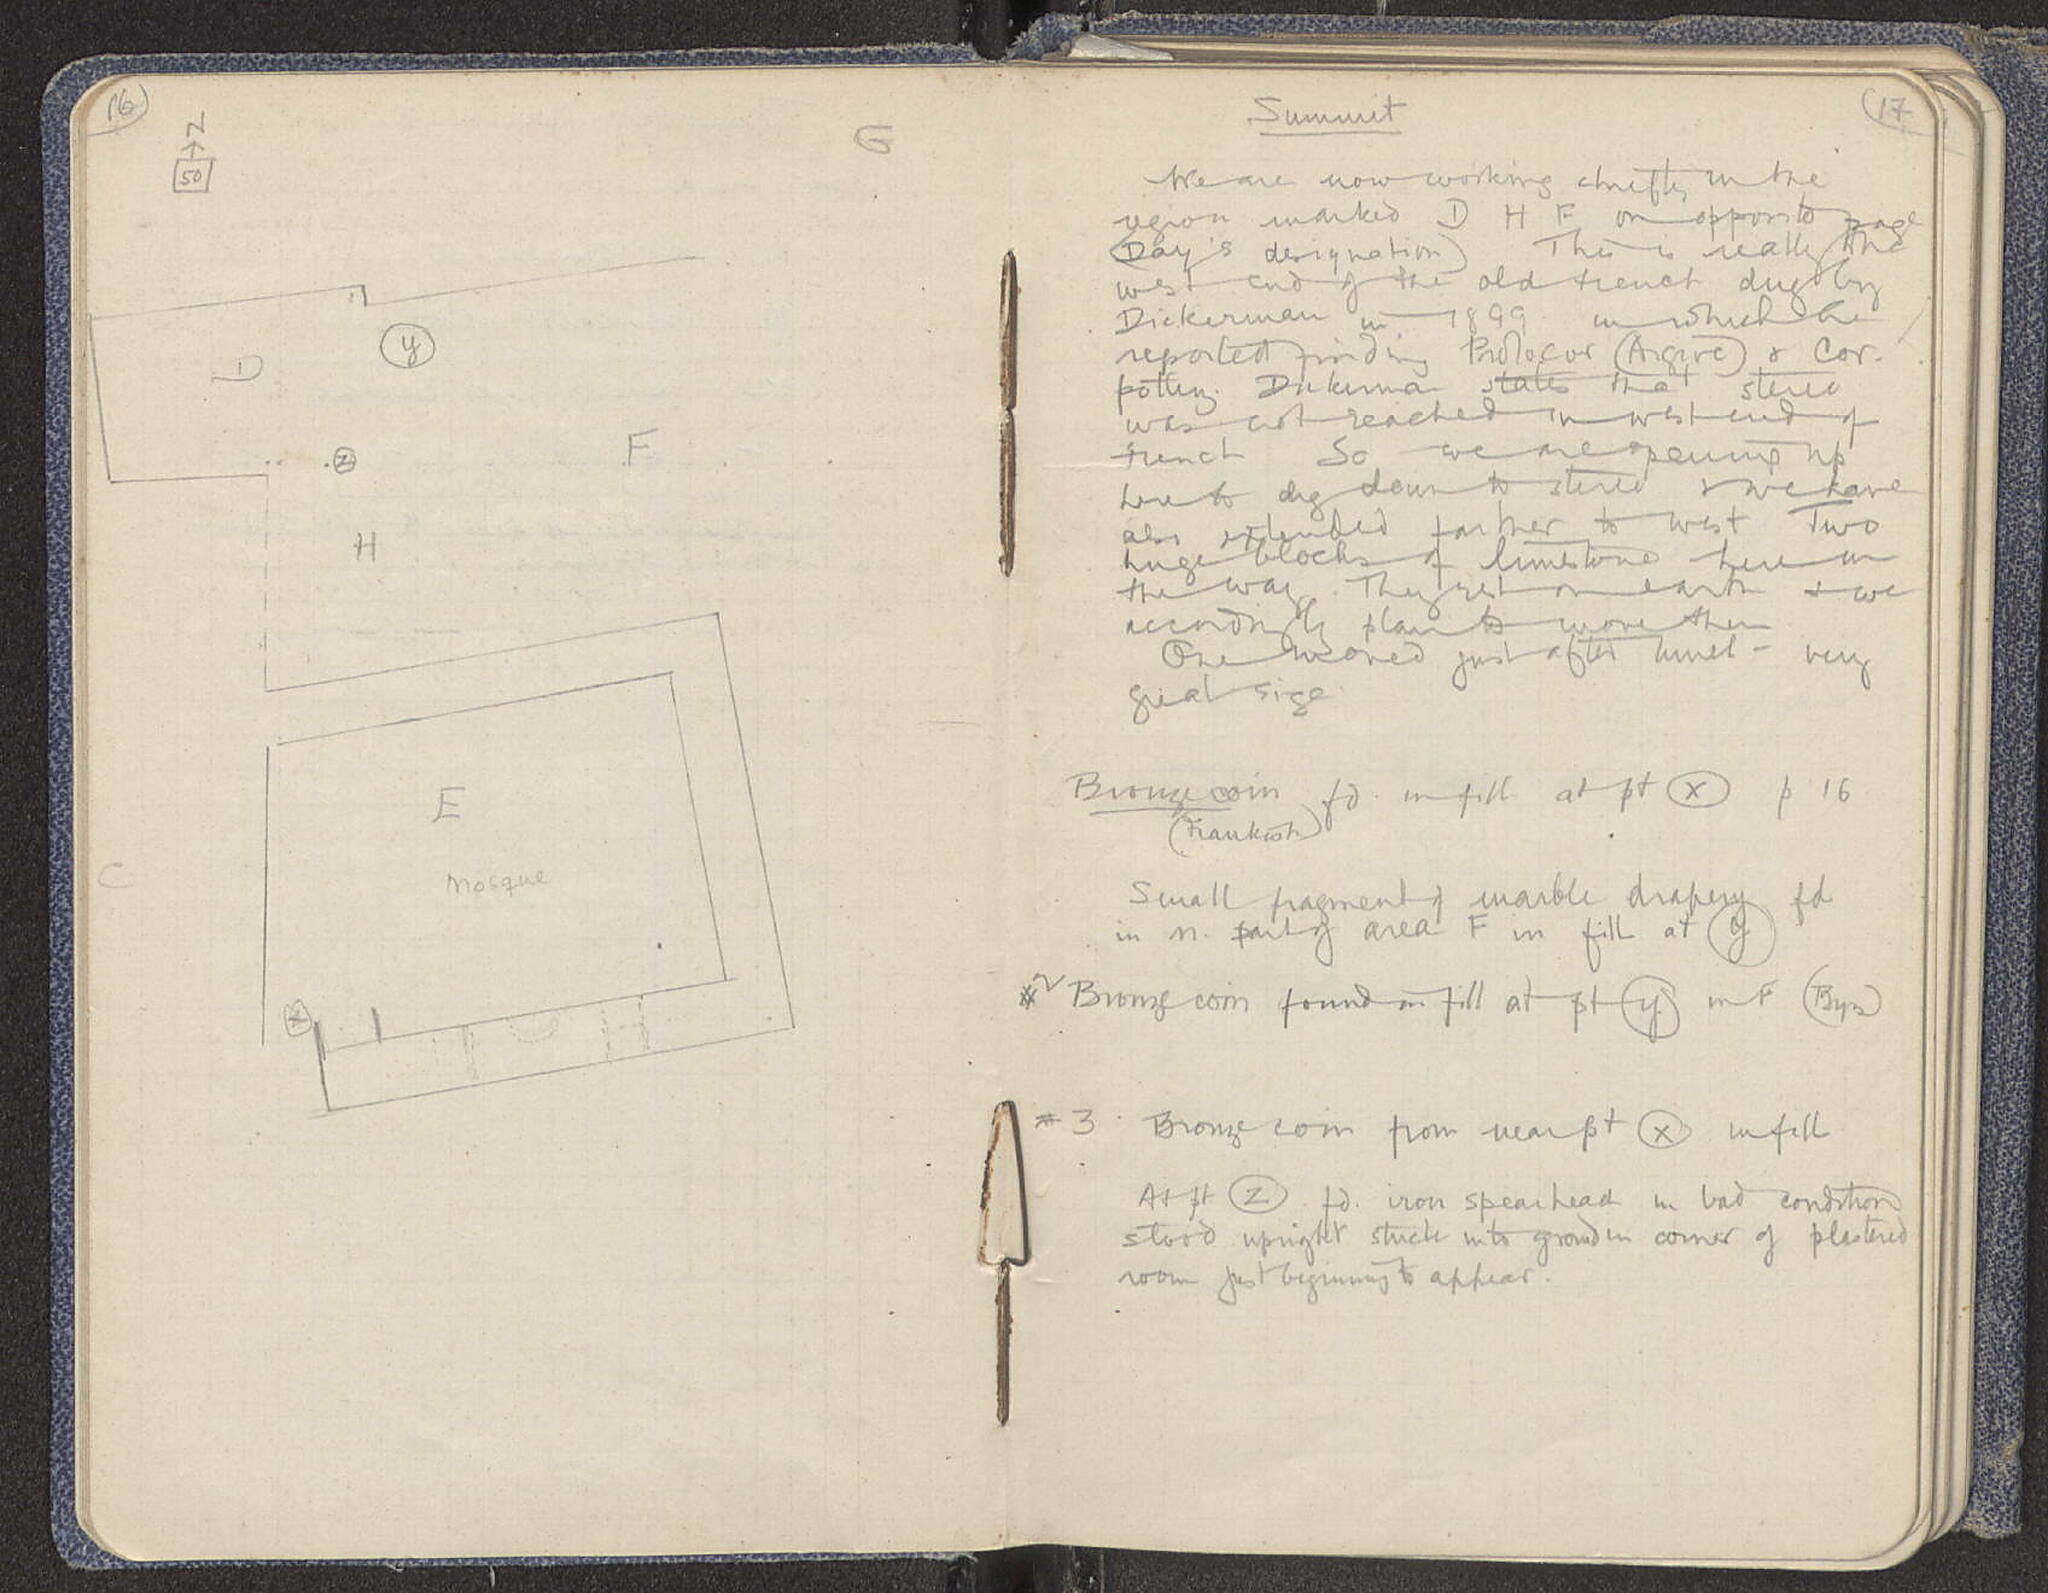 16
N
50
G
D
y
z
F
H
E
Mosque
C
x
17
Summit
We are now working chiefly in the
region marked D H F on opposite page
(Day's designation) This is really the
west end of the old trench dug by
Dickerman in 1899 in which he
reported finding Protocor (Argive) & Cor.
pottery. Dickerman states that stereo
was not reached in west end of
trench So we are opening up
here to dig down to stereo & we have
also extended farther to west Two
huge blocks of limestone here in
the way. They rest on earth & we
accordingly plan to move them
One moved just after lunch - very
great size
Bronze coin fd. in fill at pt x p 16
(Frankish)
Small fragment of marble drapery fd
in n. part of area F in fill at y
#2 Bronze coin found in fill at pt y in F (Byz)
#3 Bronze coin from near pt x in fill
At pt z fd. iron spearhead in bad condition
stood upright stuck into ground in corner of plastered
room just beginning to appear.